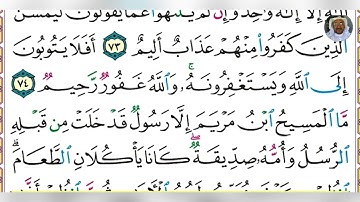 إِلَٰهٍ إِلَّا إِلَٰهٌ وَٰحِدٌ وَإِن لَّمْ يَنتَهُوا۟ عَمَّا يَقُولُونَ لَيَمَسَّنَّ
ٱلَّذِينَ كَفَرُوا۟ مِنْهُمْ عَذَابٌ أَلِيمٌ ٧٣ أَفَلَا يَتُوبُونَ
إِلَى ٱللَّهِ وَيَسْتَغْفِرُونَهُۥ ۚ وَٱللَّهُ غَفُورٌ رَّحِيمٌ ٧٤
مَّا ٱلْمَسِيحُ ٱبْنُ مَرْيَمَ إِلَّا رَسُولٌ قَدْ خَلَتْ مِن قَبْلِهِ
ٱلرُّسُلُ وَأُمُّهُۥ صِدِّيقَةٌ ۖ كَانَا يَأْكُلَانِ ٱلطَّعَامَ ۗ